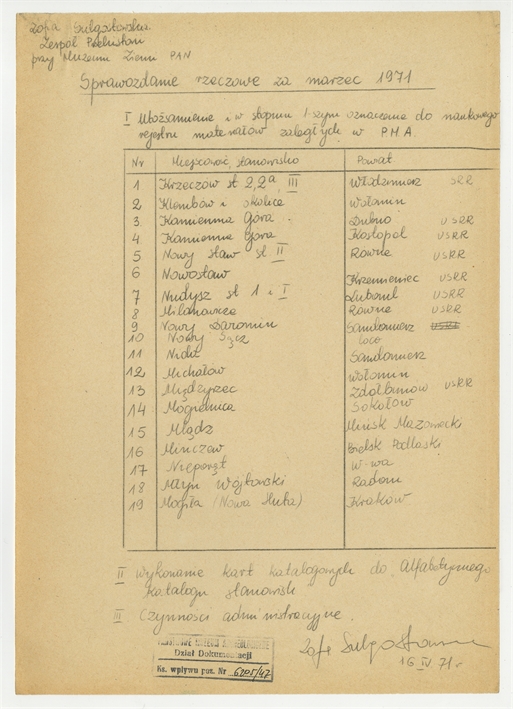 Zofia Sulgostowska
Zespół Prehistorii
przy Muzeum Ziemi PAN
Sprawozdanie rzeczowe za marzec 1971
I Utożsamienie i w stopniu I-szym oznaczenie do naukowego
rejestru materiałów zaległych w PMA.
Nr Miejscowość, stanowisko Powiat
1 Krzeczów st 2, 2a, III Włodzimierz SRR
2 Klembów i okolice Wołomin
3 Kamienna Góra Dubno USRR
4 Kamienna Góra Kostopol USRR
5 Nowy Staw st II Rowne USRR
6 Nowostaw Krzemieniec USRR
7 Nudysz st 1 i I Luboml USRR
8 Milanowicze Rowne USRR
9 Nowy Daromin Sandomierz USRR
10 Nowy Sącz loco
11 Sandomierz
12 Michałów Wołomin
13 Międzyrzec Zdołbunów USRR
14 Mogielnica Sokołów
15 Mlądz Mińsk Mazowiecki
16 Minczew Bielsk Podlaski
17 Nieporęt W-wa
18 Młyn Wójtowski Radom
19 Mogiła (Nowa Huta) Kraków
II Wykonanie kart katalogowych do alfabetycznego
Katalogu stanowisk
III Czynności administracyjne.
Zofia Sulgostowska
16 IV 71 r
PAŃSTWOWE MUZEUM ARCHEOLOGICZNE
Dział Dokumentacji
Ks. wpływu poz. Nr